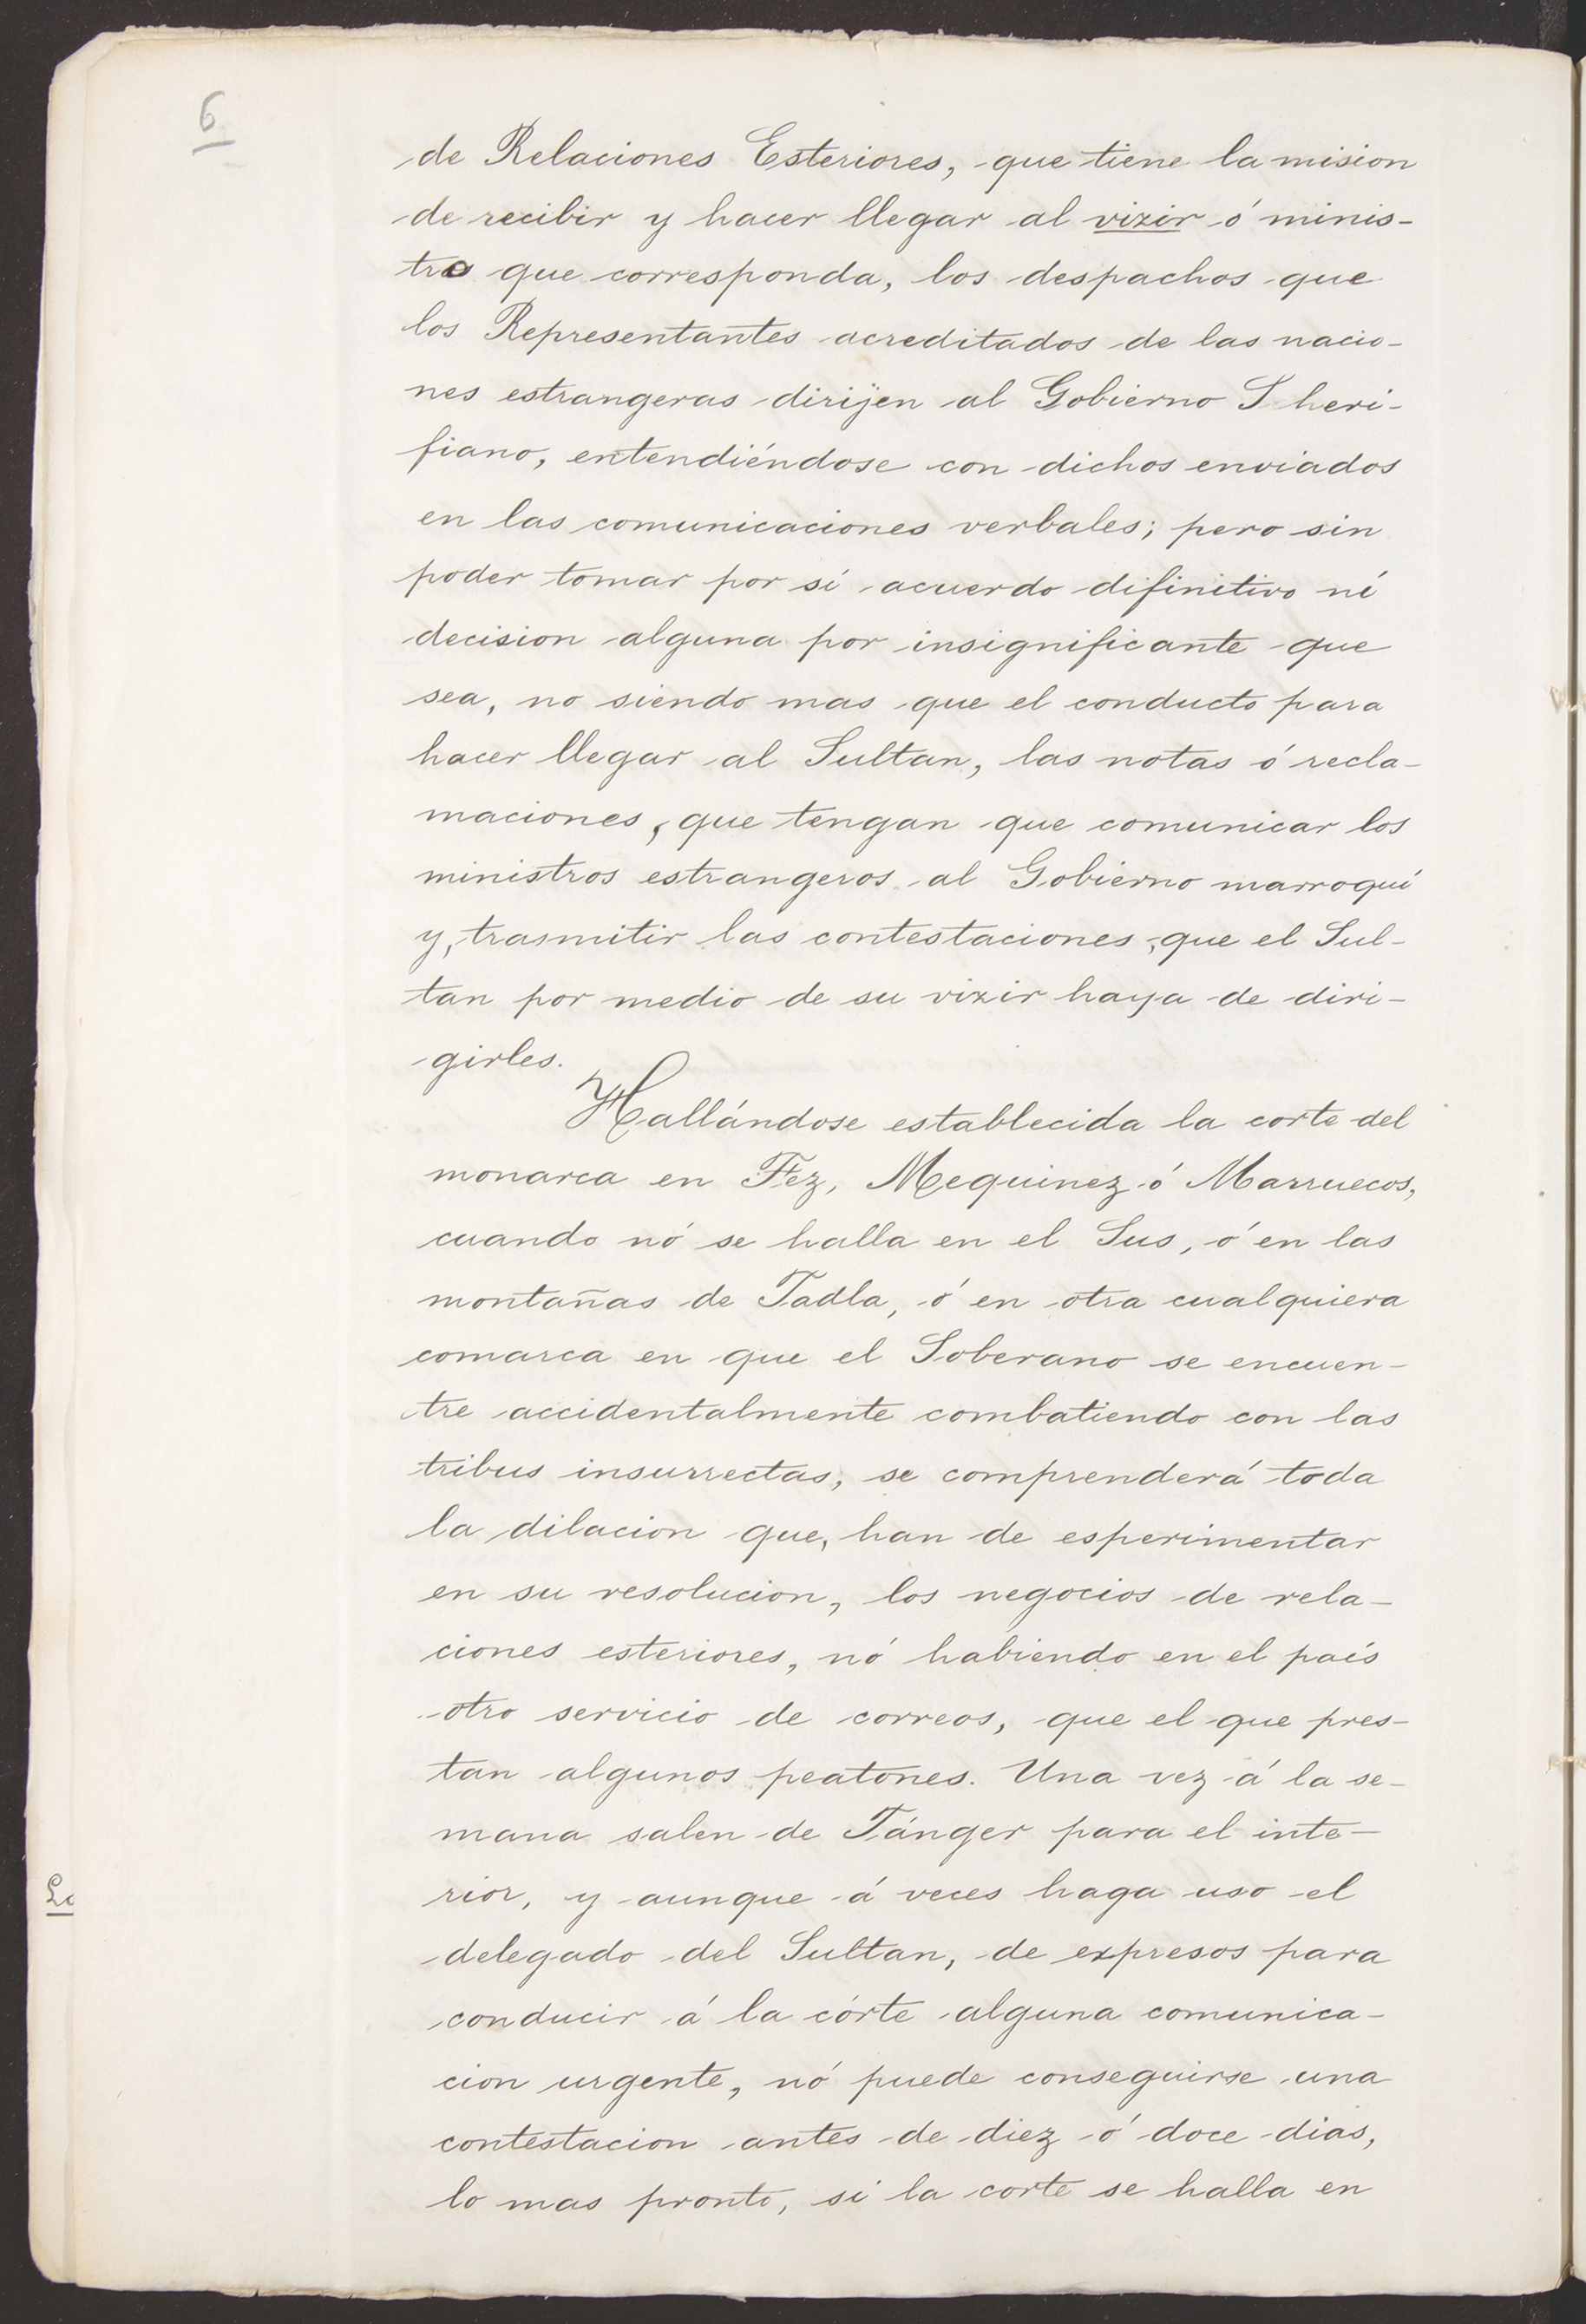 6
de Relaciones Esteriores, que tiene la mision
de recibir y hacer llegar al vizir ó minis-
tro que corresponda, los despachos que
los Representantes acreditados de las nacio-
nes estrangeras dirijen al Gobierno Sheri-
fiano, entendiéndose con dichos enviados
en las comunicaciones verbales; pero sin
poder tomar por sí acuerdo difinitivo ní
decision alguna por insignificante que
sea, no siendo mas que el conducto para
hacer llegar al Sultan, las notas ó recla-
maciones, que tengan que comunicar los
ministros estrangeros al Gobierno marroquí
y, trasmitir las contestaciones, que el Sul-
tan por medio de su vizir haya de diri-
girles.
Hallándose establecida la corte del
monarca en Fez, Mequinez ó Marruecos,
cuando nó se halla en el Sus, ó en las
montañas de Tadla, ó en otra cualquiera
comarca en que el Soberano se encuen-
tre accidentalmente combatiendo con las
tribus insurrectas, se comprenderá toda
la dilacion que, han de esperimentar
en su resolucion, los negocios de rela-
ciones esteriores, nó habiendo en el país
otro servicio de correos, que el que pres-
tan algunos peatones. Una vez á la se-
mana salen de Tánger para el inte-
rior, y aunque á veces haga uso el
delegado del Sultan, de expresos para
conducir á la córte alguna comunica-
cion urgente, nó puede conseguirse una
contestacion antes de diez ó doce dias,
lo mas pronto, si la corte se halla en